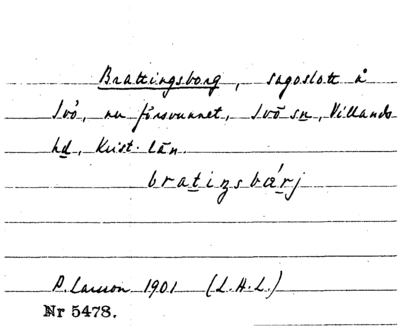 Brattingsborg, sagoslott å
Ivö, nu försvunnet, Ivö sn, Villands
hd, Krist. län.
bratiŋsbárj
P. Larsson 1901 (L.H.L.)
Nr 5478.